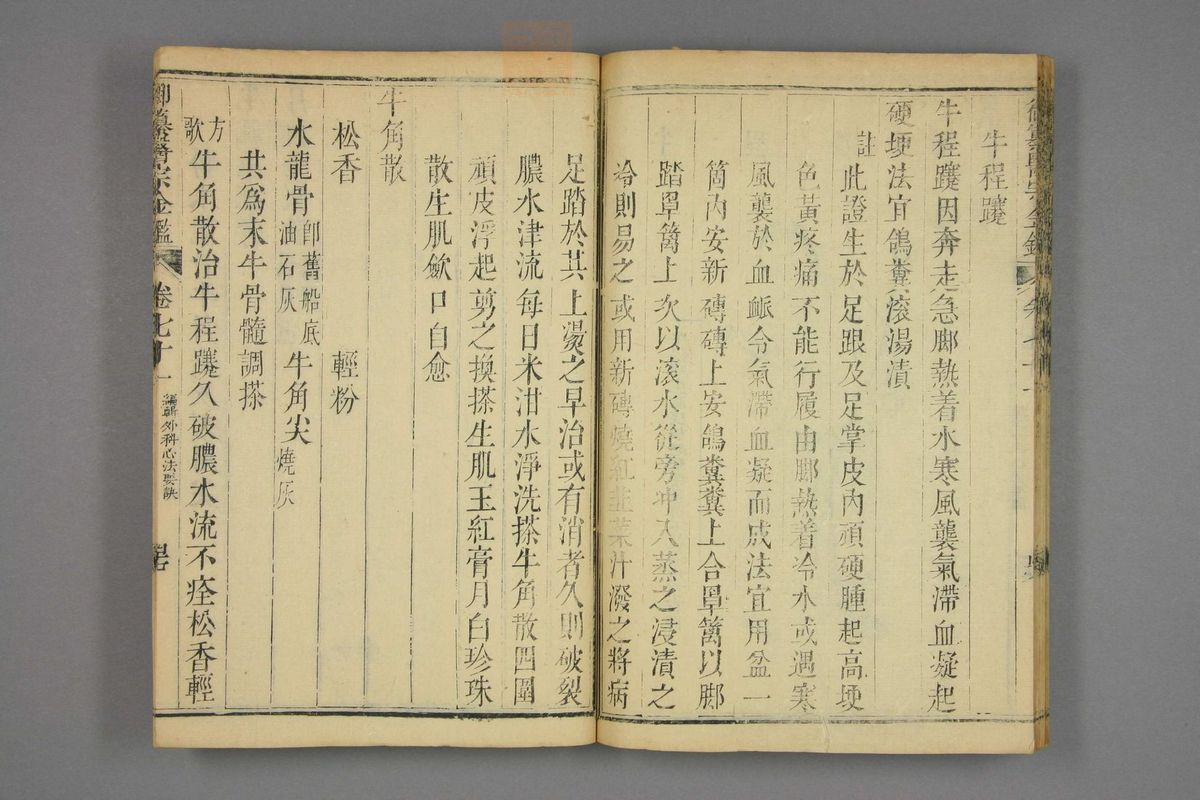 牛程蹇
牛程蹇因奔走急脚熱着水寒風襲氣滯血凝起
硬埂法宜鴿糞滾湯漬
註
此證生於足跟及足掌皮內頑硬腫起高埂
色黃疼痛不能行履由脚熱着冷水或遇寒
風襲於血衇令氣滯血凝而成法宜用盆一
箇內安新磚磚上安鴿糞糞上合罩篱以脚
踏罩篱上次以滾水從旁冲入蒸之浸漬之
冷則易之或用新磚燒紅韭菜汁潑之將病
足踏於其上燙之早治或有消者久則破裂
膿水津流每日米泔水淨洗搽牛角散四圍
頑皮浮起剪之換搽生肌玉紅膏月白珍珠
散生肌歛口自愈
牛角散
松香 輕粉
水龍骨卽舊船底油石灰 牛角尖燒灰
共為末牛骨髓調搽
方歌 牛角散治牛程蹇久破膿水流不痊松香輕
御纂醫宗金鑑 卷七十一 編輯外科心法要訣